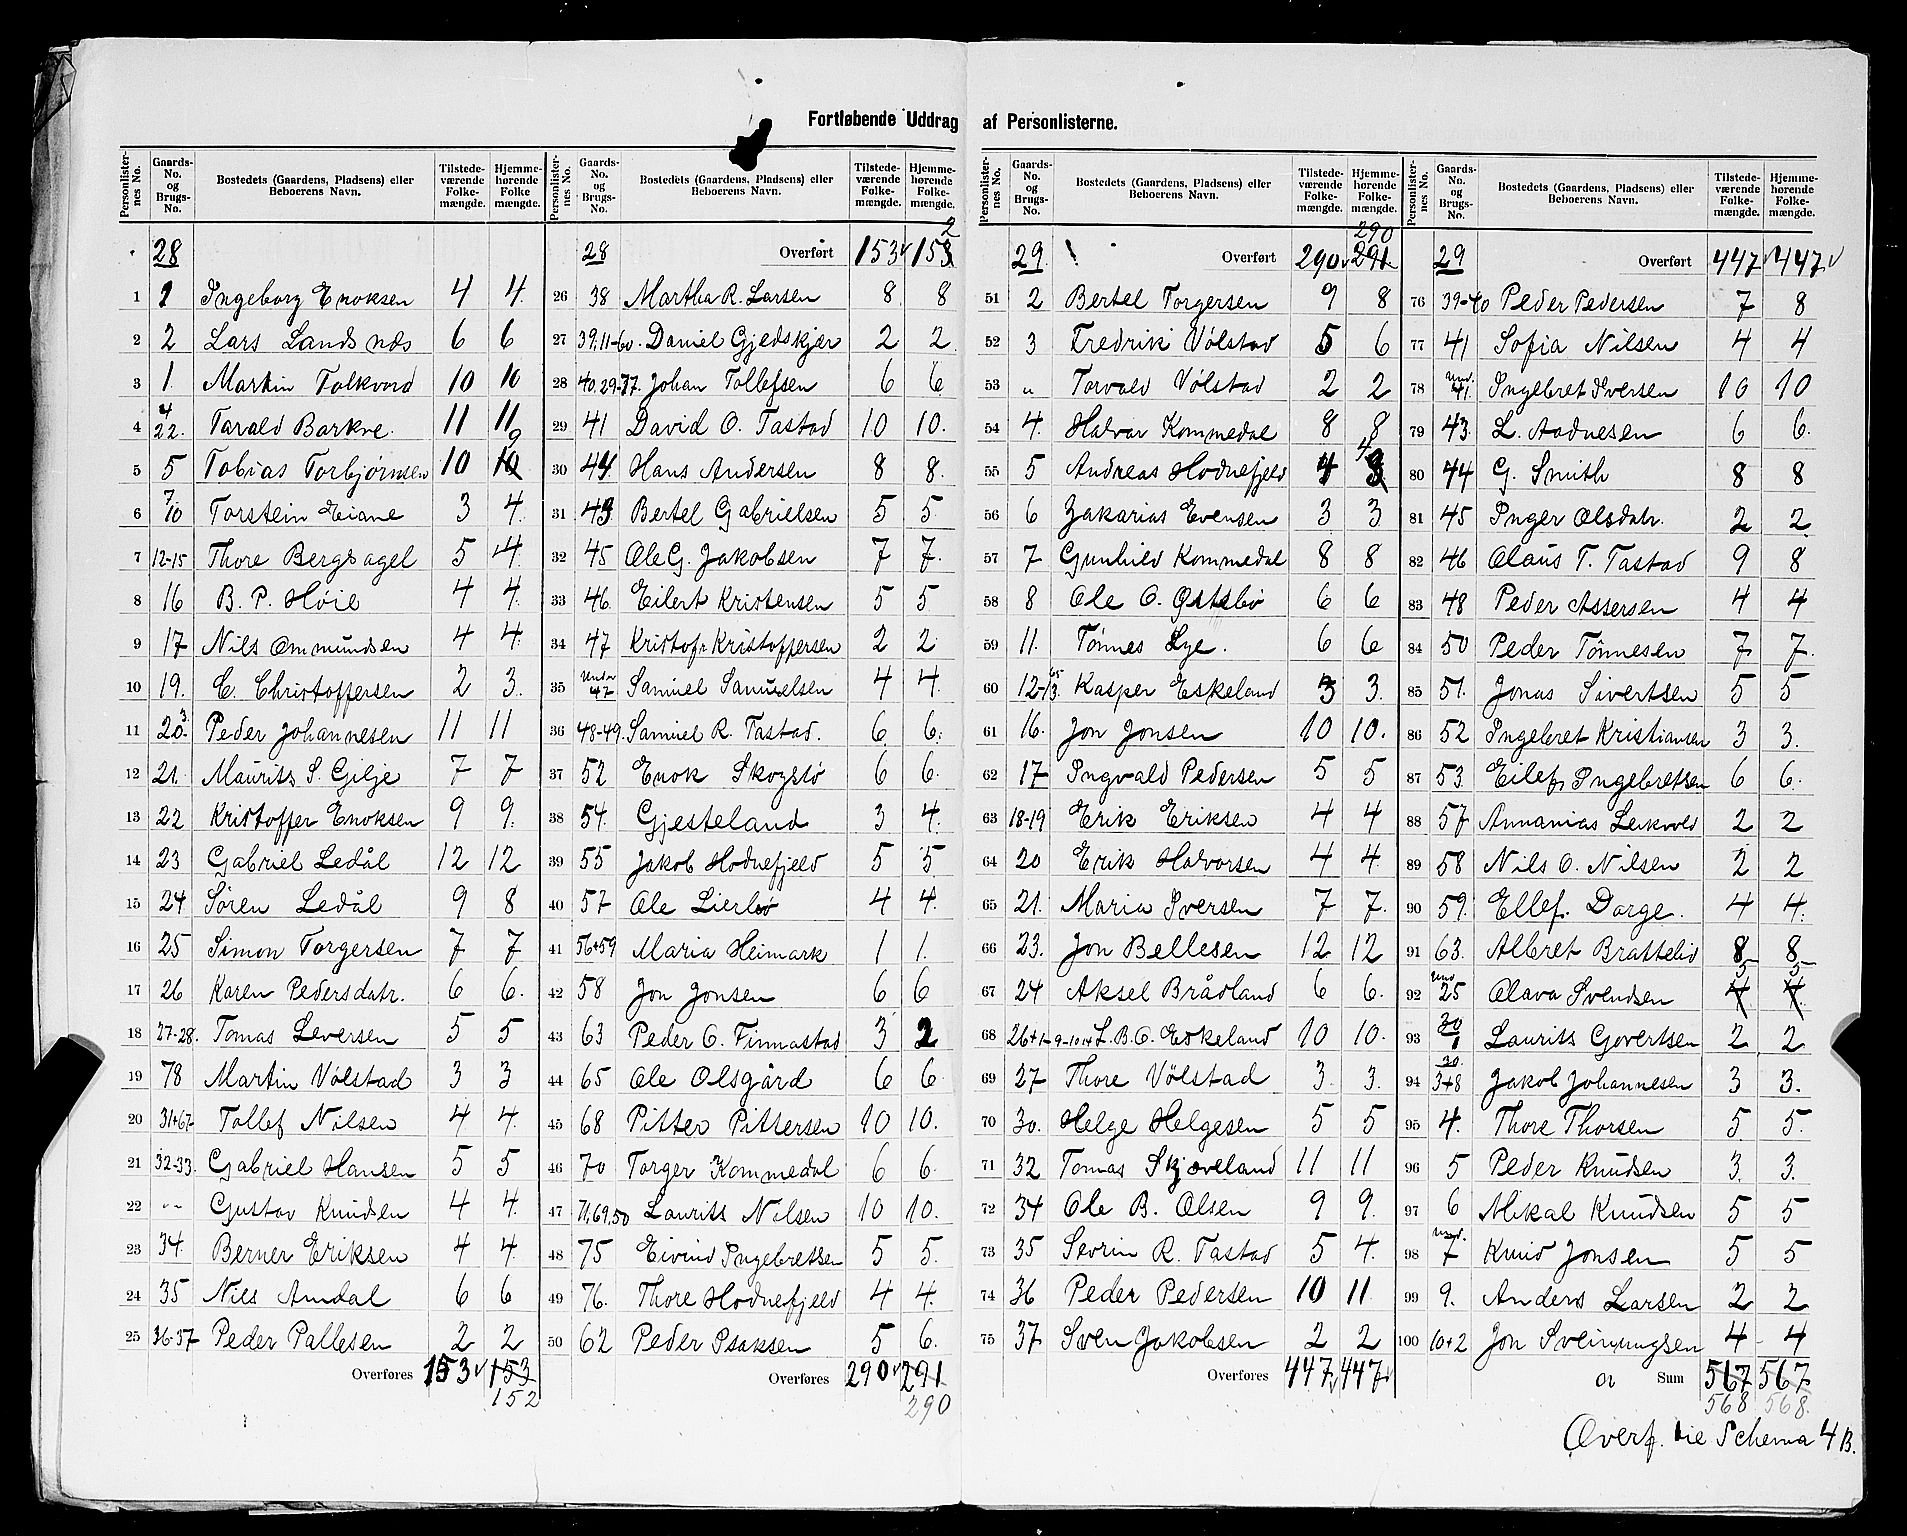 Fortløbende Uddrag af Personlisterne.
Personlisternes No. | Gaards-No. og Brugs-No. | Bostedets (Gaardens, Pladsens) eller Beboerens Navn. | Tilstedeværende Folkemængde. | Hjemmehørende Folkemængde.
28
1 | 1 | Ingeborg Enoksen | 4 | 4
2 | 2 | Lars Landsnæs | 6 | 6
3 | 1 | Martin Tolkvord | 10 | 10
4 | 4/22. | Tarald Barkve. | 11 | 11
5 | 5 | Tobias Torbjørnsen | 10 | 10 9
6 | 7/10 | Torstein Eiane | 3 | 4.
7 | 12-15 | Thore Bergsagel | 5 | 4.
8 | 16 | B. P. Høie | 4 | 4.
9 | 17 | Nils Ommundsen | 4 | 4.
10 | 19. | C. Christoffersen | 2 | 3.
11 | 20.3. | Peder Johannesen | 11 | 11
12 | 21. | Maurits S. Gilje | 7 | 7
13 | 22 | Kristoffer Enoksen | 9 | 9.
14 | 23 | Gabriel Ledål | 12 | 12
15 | 24 | Søren Ledål | 9 | 8
16 | 25 | Simon Torgersen | 7 | 7
17 | 26 | Karen Pedersdatr. | 6 | 6.
18 | 27-28. | Tomas Seversen | 5 | 5
19 | 78 | Martin Vølstad | 3 | 3
20 | 31+67 | Tollef Nilsen | 4 | 4.
21 | 32-33. | Gabriel Hansen | 5 | 5
22 | -- | Gustav Knudsen | 4 | 4.
23 | 34. | Berner Eriksen | 4 | 4.
24 | 35 | Nils Amdal | 6 | 6
25 | 36-37 | Peder Pallesen | 2 | 2
Overføres 153 153 152
Personlisternes No. | Gaards-No. og Brugs-No. | Bostedets (Gaardens, Pladsens) eller Beboerens Navn. | Tilstedeværende Folkemængde. | Hjemmehørende Folkemængde.
28 Overført 153 153 2
26 | 38 | Martha R. Larsen | 8 | 8
27 | 39.11-60. | Daniel Gjedskjær | 2 | 2
28 | 40.29-77. | Johan Tollefsen | 6 | 6.
29 | 41 | David O. Tastad | 10 | 10.
30 | 44. | Hans Andersen | 8 | 8.
31 | 43 | Bertel Gabrielsen | 5 | 5
32 | 45 | Ole G. Jakobsen | 7 | 7.
33 | 46. | Eilert Kristensen | 5 | 5
34 | 47 | Kristofr Kristoffersen | 2 | 2.
35 | under 47 | Samuel Samuelsen | 4 | 4.
36 | 48-49. | Samuel R. Tastad. | 6 | 6.
37 | 52 | Enok Skogstø | 6 | 6.
38 | 54. | Gjesteland | 3 | 4.
39 | 55 | Jakob Hodnefjeld | 5 | 5
40 | 57 | Ole Lierbø | 4 | 4.
41 | 56+59 | Maria Heimark | 1 | 1.
42 | 58 | Jon Jonsen | 6 | 6
43 | 63 | Peder O. Finnastad | 3 | 2
44 | 65 | Ole Olsgård | 6 | 6.
45 | 68 | Pitter Pittersen | 10 | 10.
46 | 70 | Torger Kommedal | 6 | 6.
47 | 71,69,50 | Laurits Nilsen | 10 | 10.
48 | 75 | Eivind Ingebretsen | 5 | 5.
49 | 76. | Thore Hodnefjeld | 4 | 4.
50 | 62 | Peder Isaksen | 5 | 6.
Overføres 290 291 290
Personlisternes No. | Gaards-No. og Brugs-No. | Bostedets (Gaardens, Pladsens) eller Beboerens Navn. | Tilstedeværende Folkemængde. | Hjemmehørende Folkemængde.
29. Overført 290 291 290
51 | 2 | Bertel Torgersen | 9 | 8
52 | 3 | Fredrik Vølstad | 5 | 6
53 | " | Torvald Vølstad | 2 | 2
54 | 4. | Halvar Kommedal | 8 | 8
55 | 5 | Andreas Hodnefjeld | 4 | 3 4
56 | 6 | Zakarias Evensen | 3 | 3
57 | 7 | Gunhild Kommedal | 8 | 8
58 | 8 | Ole O. Østebø | 6 | 6
59 | 11. | Tønnes Lye. | 6 | 6
60 | 12-13. 65 | Kasper Eskeland | 3 | 3.
61 | 16. | Jon Jonsen | 10 | 10.
62 | 17 | Ingvald Pedersen | 5 | 5
63 | 18-19 | Erik Eriksen | 4 | 4
64 | 20 | Erik Halvorsen | 4 | 4.
65 | 21. | Maria Iversen | 7 | 7.
66 | 23. | Jon Bellesen | 12 | 12
67 | 24 | Aksel Brådland | 6 | 6.
68 | 26+1-9-10.14 | L. B. O. Eskeland | 10 | 10.
69 | 27 | Thore Vølstad | 3. | 3.
70 | 30. | Helge Helgesen | 5 | 5
71 | 32 | Tomas Skjæveland | 11 | 11
72 | 34 | Ole B. Olsen | 9 | 9.
73 | 35 | Sevrin R. Tastad | 5 | 4.
74 | 36 | Peder Pedersen | 10 | 11
75 | 37 | Sven Jakobsen | 2 | 2
Overføres 447 447
Personlisternes No. | Gaards-No. og Brugs-No. | Bostedets (Gaardens, Pladsens) eller Beboerens Navn. | Tilstedeværende Folkemængde. | Hjemmehørende Folkemængde.
29 Overført 447 447
76 | 39-40 | Peder Pedersen | 7 | 8
77 | 41 | Sofia Nilsen | 4 | 4
78 | und. 41. | Ingebret Iversen | 10 | 10
79 | 43. | L. Aadnesen | 6 | 6.
80 | 44 | G. Smith | 8 | 8
81 | 45 | Inger Olsdatr. | 2 | 2.
82 | 46 | Olaus T. Tastad | 9 | 8
83 | 48 | Peder Assersen | 4 | 4
84 | 50 | Peder Tønnesen | 7 | 7.
85 | 51. | Jonas Sivertsen | 5 | 5
86 | 52 | Ingebret Kristiansen | 3 | 3.
87 | 53. | Eilef Ingebretsen | 6 | 6.
88 | 57 | Annanias Leikvold | 2 | 2
89 | 58 | Nils O. Nilsen | 2 | 2
90 | 59. | Ellef. Dorge. | 4 | 4.
91 | 63. | Albret Brattebø | 8 | 8
92 | und. 25 | Olava Svendsen | 4 5 | 4 5
93 | 30/1 | Laurits Govertsen | 2 | 2
94 | 30. 3+8 | Jakob Johannesen | 3 | 3.
95 | 4. | Thore Thorsen | 5 | 5.
96 | 5 | Peder Knudsen | 3. | 3.
97 | 6 | Mikal Knudsen | 5 | 5
98 | und. 7 | Knud Jonsen | 5 | 5
99 | 9. | Anders Larsen | 2 | 2
100 | 10+2 | Jon Sveinungsen | 4 | 4
Sum 567 567.
568 568.
Overf. Schema 4 B.